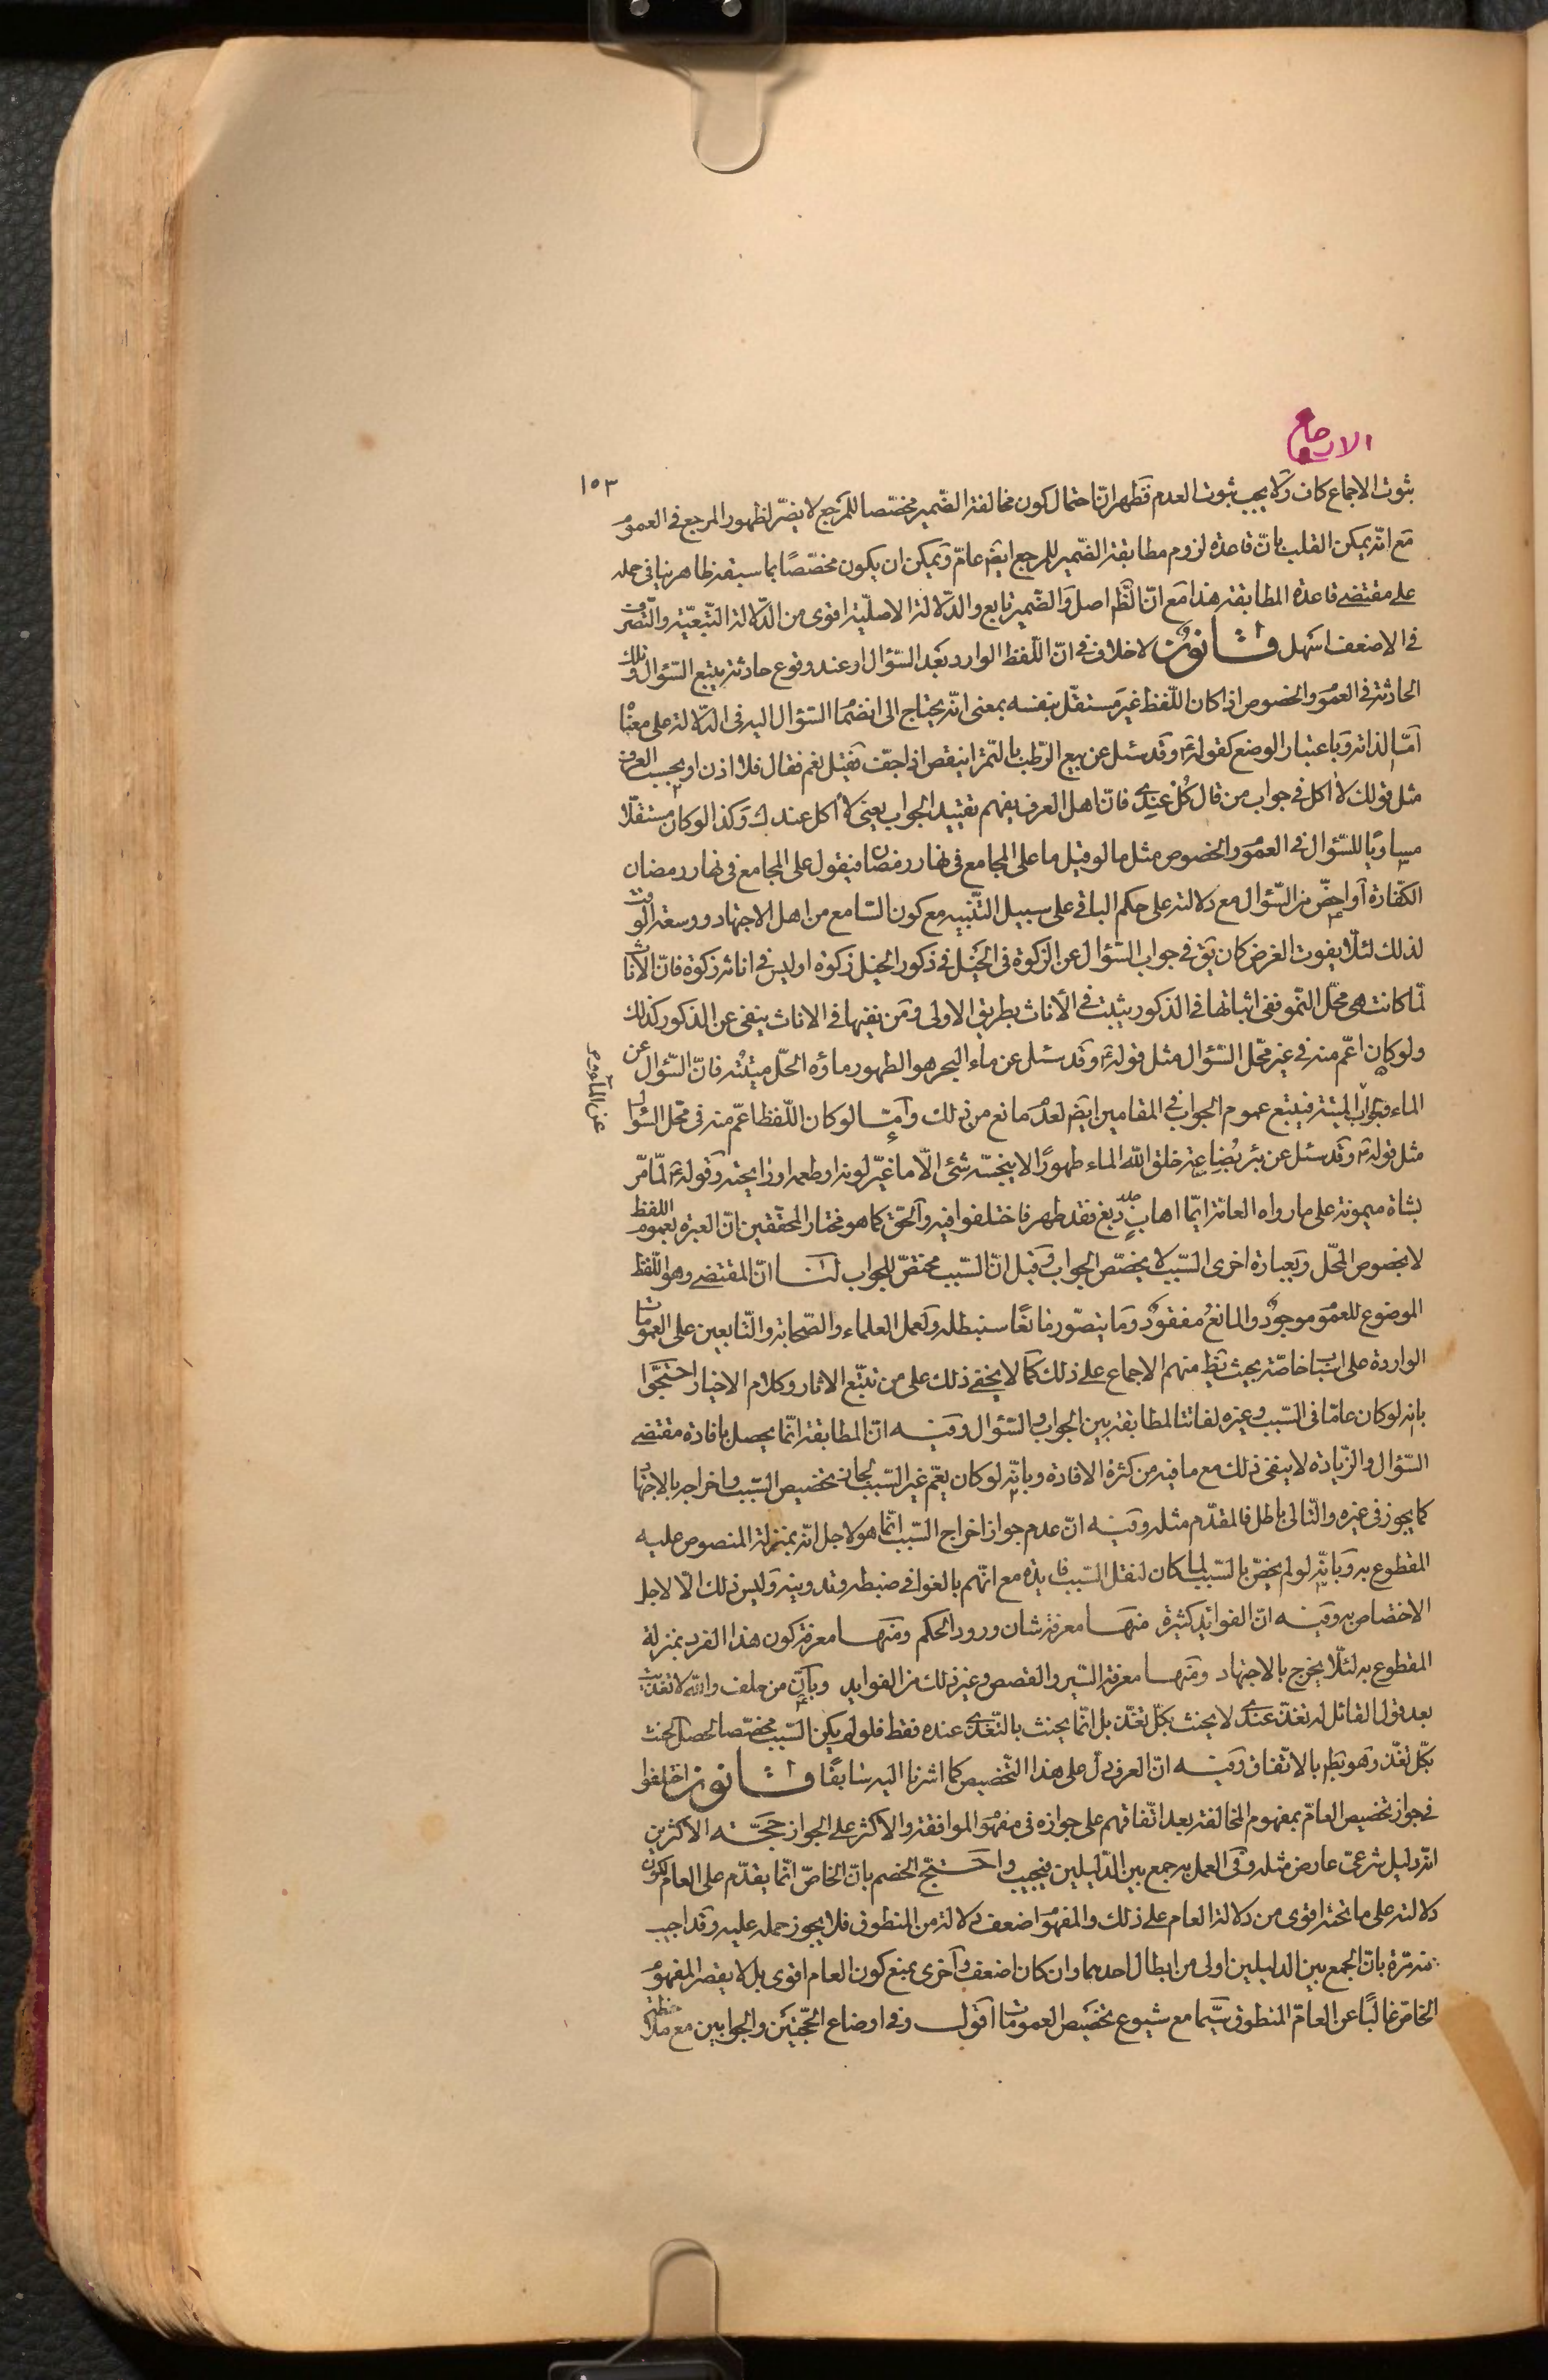 الارجاع
١٥٣
ثبوت الاجماع كاف ولا يجب ثبوت العدم فظهر انّ احتمال كون مخالفة الضّمير مخصّصا للمرجع لا يضرّ لظهور المرجع في العموم
مع انّه يمكن القلب بانّ قاعدة لزوم مطابقة الضّمير للمرجع ايضا عامّ ويمكن ان يكون مخصّصًا بما سبقه ظاهر ينافي حمله
على مقتضى قاعدة المطابقة هذا مع انّ الظّم اصل والضّمير تابع والدّلالة الاصليّة اقوى من الدّلالة التّبعيّة والتّصرّف
في الاضعف اسهل قانون لا خلاف في انّ اللّفظ الوارد بعد السّؤال او عند وقوع حادثة يتبع السّؤال وتلك
الحادثة في العموم والخصوص اذا كان اللّفظ غير مستقلّ بنفسه بمعنى انّه يحتاج الى انضمام السّؤال اليه في الدّلالة على معناه
امّا لذاته وباعتبار الوضع كقوله ع وقد سئل عن بيع الرّطب بالتّمر اينقص اذا جفّ فقيل نعم فقال فلا اذن او بحسب العرف
مثل قولك لا اكل في جواب من قال كُل عندى فانّ اهل العرف يفهم تقييد الجواب يعنى لا اكل عندك وكذا لو كان مستقلّا
مساويا للسّؤال في العموم والخصوص مثل ما لو قيل ما على المجامع في نهار رمضان فيقول على المجامع في نهار رمضان
الكفّارة او اخصّ من السّؤال مع دلالته على حكم الباقي على سبيل التّنبيه مع كون السّامع من اهل الاجتهاد ووسعة الوقت
لذلك لئلّا يفوت الغرض كان يق في جواب السّؤال عن الزكوة في الخيل في ذكور الخيل زكوة او ليس في اناثه زكوة فانّ الاناث
لمّا كانت هي محلّ النّمو ففي اثباتها في الذكور يثبت في الاناث بطريق الاولى ومن نفيها في الاناث ينفى عن الذكور كذلك
ولو كان اعمّ منه في غير محّل السّؤال مثل قوله ع وقد سئل عن ماء البحر هو الطهور ماؤه الحلّ ميتته فانّ السّؤال عن
الماء فيتبع عموم الجواب في المقامين ايضا لعدم مانع من ذلك وامّا لو كان اللّفظ اعمّ منه في محّل السّؤال
مثل قوله ع وقد سئل عن بئر بُضاعة خلق الله الماء طهورًا لا ينجسّه شئ الّا ما غيّر لونه او طعمه او رايحته وقوله ع لمّا مرّ
بشاة ميمونة على ما رواه العامّة ايّما اهاب دبغ فقد طهر فاختلفوا فيه والحقّ كما هو مختار المحقّقين انّ العبرة بعموم اللفظ
لا بخصوص المحّل وبعبارة اخرى السّبب لا يخصّص الجواب وقيل انّ السّبب مخصّص للجواب لنا انّ المقتضى وهو اللّفظ
الموضوع للعموم موجودٌ والمانعُ مفقودٌ وما يتصّور مانعًا سنبطله ولعمل العلماء والصّحابة والتّابعين على العمومات
الواردة على اسباب خاصّة بحيث يظ منهم الاجماع على ذلك كما لا يخفى ذلك على من تتبّع الاثار وكلام الاخيار احتجّوا
بانّه لو كان عامّا في السّبب وغيره لفاتت المطابقة بين الجواب والسّؤال وفيه انّ المطابقة انّما يحصل بافادة مقتضى
السّؤال والزّيادة لا ينفى ذلك مع ما فيه من كثرة الافادة وبانّه لو كان يعّم غير السّبب لجاز تخصيص السّبب واخراجه بالاجتهاد
كما يجوز في غيره والتّالى باطل فالمقدّم مثله وفيه انّ عدم جواز اخراج السّبب انّما هو لاجل انّه بمنزلة المنصوص عليه
المقطوع به وبانّه لو لم يخصّ بالسّبب لما كان لنقل السّبب فايدة مع انّهم بالغوا في ضبطه وتدوينه وليس ذلك الّا لاجل
الاختصاص به وفيه انّ الفوايد كثيرة منها معرفة شان ورود الحكم ومنها معرفة كون هذا الفرد بمنزلة
المقطوع به لئلّا يخرج بالاجتهاد ومنها معرفة السّير والقصص وغير ذلك من الفوايد وبانّ من حلف والله لا تغدّيت
بعد قول القائل له تغدّ عندى لا يحنث بكلّ تغدّ بل انّما يحنث بالتّغدّى عنده فقط فلو لم يكن السّبب مخصّصا لحصل الحنث
بكلّ تغدّ وهو بط بالاتّفاق وفيه انّ العرف دلّ على هذا التّخصيص كما اشرنا اليه سابقًا قانون اختلفوا
في جواز تخصيص العامّ بمفهوم المخالفة بعد اتّفاقهم على جوازه في مفهوم الموافقة والاكثر على الجواز حجّته الاكثرين
انّه دليل شرعىّ عارض مثله وفى العمل به جمع بين الدّليلين فيجيب واحتجّ الخصم بانّ الخاصّ انّما يقدّم على العام لكون
دلالته على ما تحته اقوى من دلالة العام على ذلك والمفهوم اضعف دلالة من المنطوق فلا يجوز حمله عليه وقد اجيب
منه مرّة بانّ الجمع بين الدليلين اولى من ابطال احدهما وان كان اضعف واخرى بمنع كون العام اقوى بل لا يقصر المفهوم
الخاصّ غالبًا عن العامّ المنطوق سيّما مع شيوع تخصيص العمومات اقول وفي اوضاع الحجّتين والجوابين مع ملاحظة